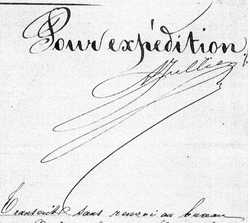 Pour expédition
Jullien
Transcrit sans renvoi au bureau